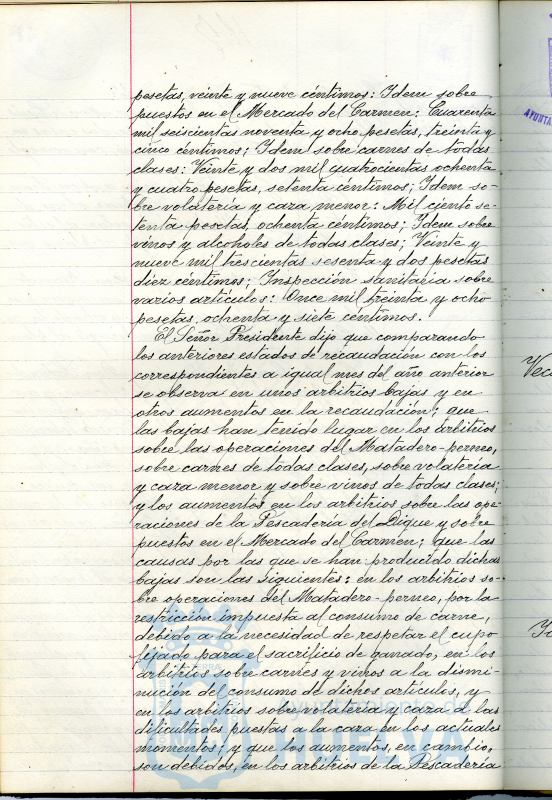 pesetas, veinte y nueve céntimos: Idem sobre
puestos en el Mercado del Carmen: Cuarenta
mil seiscientas noventa y ocho pesetas, treinta y
cinco céntimos; Idem sobre carnes de todas
clases: Veinte y dos mil cuatrocientas ochenta
y cuatro pesetas, setenta céntimos; Idem so-
bre volatería y caza menor: Mil ciento se-
tenta pesetas, ochenta céntimos; Idem sobre
vinos y alcoholes de todas clases; Veinte y
nueve mil trescientas sesenta y dos pesetas
diez céntimos; Inspección sanitaria sobre
varios artículos: Once mil treinta y ocho
pesetas, ochenta y siete céntimos.
El Señor Presidente dijo que comparando
los anteriores estados de recaudación con los
correspondientes a igual mes del año anterior
se observa en unos arbitrios bajas y en
otros aumentos en la recaudación; que
las bajas han tenido lugar en los arbitrios
sobre las operaciones del Matadero-perneo,
sobre carnes de todas clases, sobre volatería
y caza menor y sobre vinos de todas clases;
y los aumentos en los arbitrios sobre las ope-
raciones de la Pescadería del Dique y sobre
puestos en el Mercado del Carmen; que las
causas por las que se han producido dichas
bajas son las siguientes: en los arbitrios so-
bre operaciones del Matadero-perneo, por la
restricción impuesta al consumo de carne,
debido a la necesidad de respetar el cupo
fijado para el sacrificio de ganado, en los
arbitrios sobre carnes y vinos a la dismi-
nución del consumo de dichos artículos, y
en los arbitrios sobre volatería y caza a las
dificultades puestas a la caza en los actuales
momentos; y que los aumentos, en cambio,
son debidos, en los arbitrios de la Pescadería